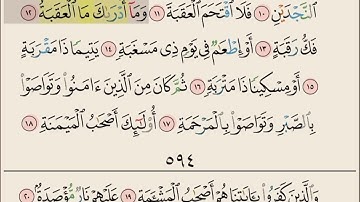 ٱلنَّجۡدَيۡنِ ١٠ فَلَا ٱقۡتَحَمَ ٱلۡعَقَبَةَ ١١ وَمَآ أَدۡرَىٰكَ مَا ٱلۡعَقَبَةُ ١٢
فَكُّ رَقَبَةٍ ١٣ أَوۡ إِطۡعَٰمٞ فِي يَوۡمٖ ذِي مَسۡغَبَةٖ ١٤ يَتِيمٗا ذَا مَقۡرَبَةٍ
١٥ أَوۡ مِسۡكِينٗا ذَا مَتۡرَبَةٖ ١٦ ثُمَّ كَانَ مِنَ ٱلَّذِينَ ءَامَنُواْ وَتَوَاصَوۡاْ
بِٱلصَّبۡرِ وَتَوَاصَوۡاْ بِٱلۡمَرۡحَمَةِ ١٧ أُوْلَٰٓئِكَ أَصۡحَٰبُ ٱلۡمَيۡمَنَةِ ١٨
٥٩٤
وَٱلَّذِينَ كَفَرُواْ بِـَٔايَٰتِنَا هُمۡ أَصۡحَٰبُ ٱلۡمَشۡـَٔمَةِ ١٩ عَلَيۡهِمۡ نَارٞ مُّؤۡصَدَةُۢ ٢٠